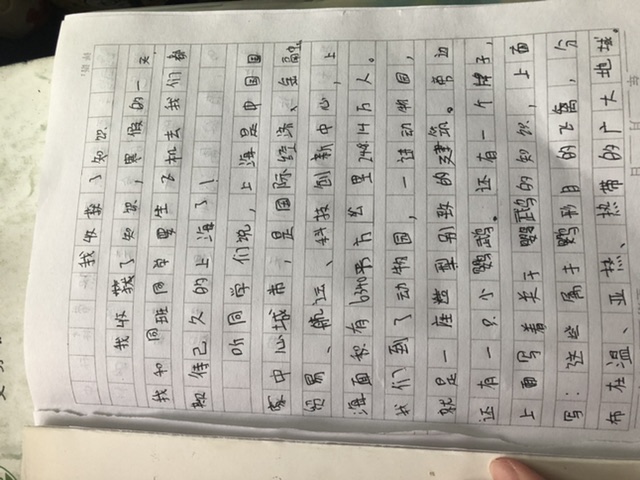 我收获了知识
我收获了知识，寒假的一天，
我和同班同学要坐飞机去我们
期待已久的上海了！
听同学们说，上海是中国国
家中心城市，是国际经济、金融、
贸易、航运、科技创新中心，上
海面积有6340平方公里24814万人。
我们到了动物园，一进动物园，
就是一座造型别致的建筑。旁边
还有一只小鹦鹉。还有一个牌子，
上面写着关于鹦鹉的知识，上面
写：这些属于鹦形目的飞禽，分
布在温、亚热、热带的广大地域。